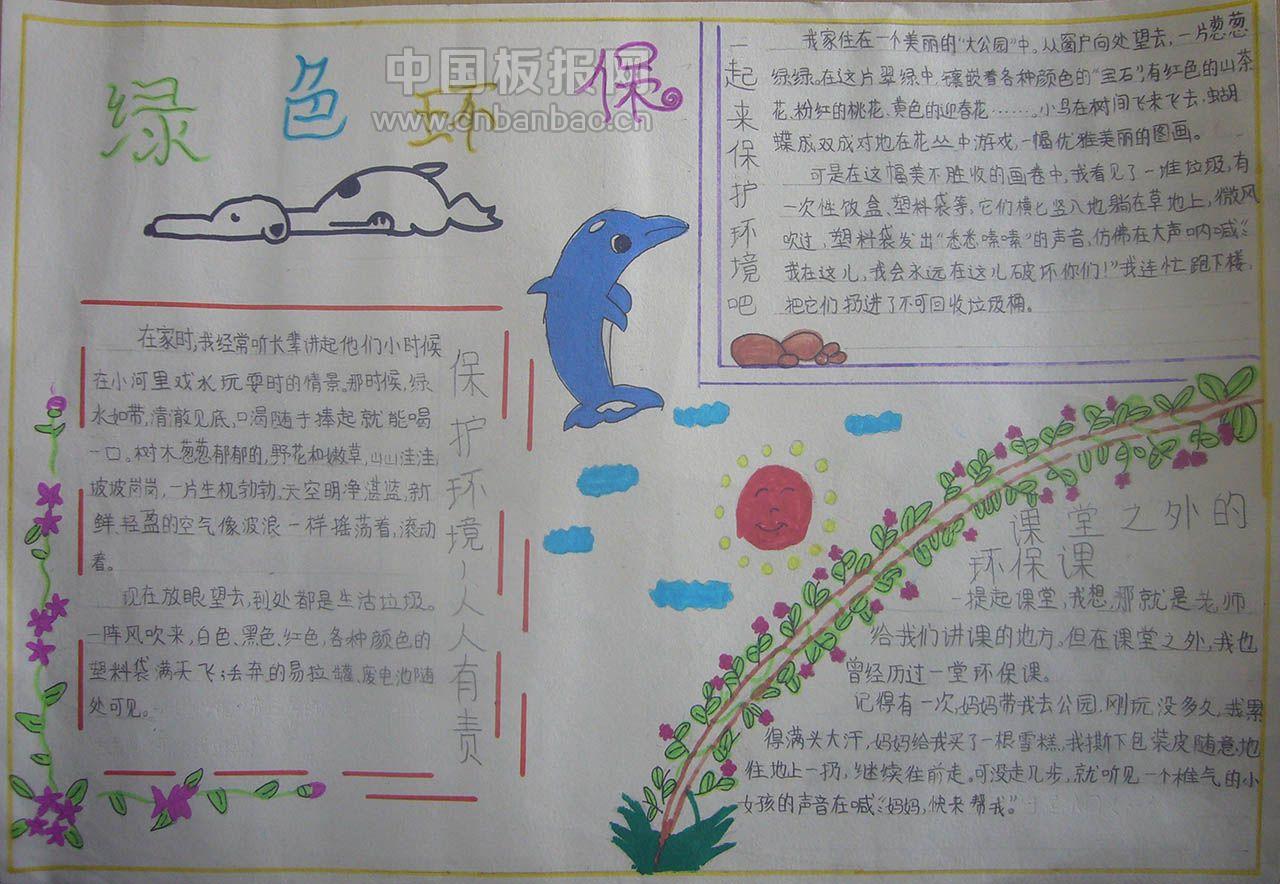 绿色环保
中国板报网
www.cnbanbao.cn
一起来保护环境吧
我家住在一个美丽的“大公园”中。从窗户向处望去,一片葱葱
绿绿。在这片翠绿中,镶嵌着各种颜色的“宝石”,有红色的山茶
花、粉红的桃花、黄色的迎春花……。小鸟在树间飞来飞去,蝴
蝶成双成对地在花丛中游戏,一幅优雅美丽的图画。
可是在这幅美不胜收的画卷中,我看见了一堆垃圾,有
一次性饭盒、塑料袋等,它们横七竖八地躺在草地上,微风
吹过,塑料袋发出“悉悉嗦嗦”的声音,仿佛在大声呐喊:“
我在这儿,我会永远在这儿破坏你们!”我连忙跑下楼,
把它们扔进了不可回收垃圾桶。
保护环境,人人有责
在家时,我经常听长辈讲起他们小时候
在小河里戏水玩耍时的情景。那时候,绿
水如带,清澈见底,口渴随手捧起就能喝
一口。树木葱葱郁郁的,野花和嫩草,山山洼洼,
坡坡岗岗,一片生机勃勃。天空明净湛蓝,新
鲜、轻盈的空气像波浪一样摇荡着,滚动
着。
现在放眼望去,到处都是生活垃圾。
一阵风吹来,白色、黑色、红色,各种颜色的
塑料袋满天飞;丢弃的易拉罐、废电池随
处可见。
课堂之外的
环保课
一提起课堂,我想,那就是老师
给我们讲课的地方。但在课堂之外,我也
曾经历过一堂环保课。
记得有一次,妈妈带我去公园,刚玩没多久,我累
得满头大汗,妈妈给我买了一根雪糕,我撕下包装皮随意地
往地上一扔,继续往前走。可没走几步,就听见一个稚气的小
女孩的声音在喊:“妈妈,快来帮我”。